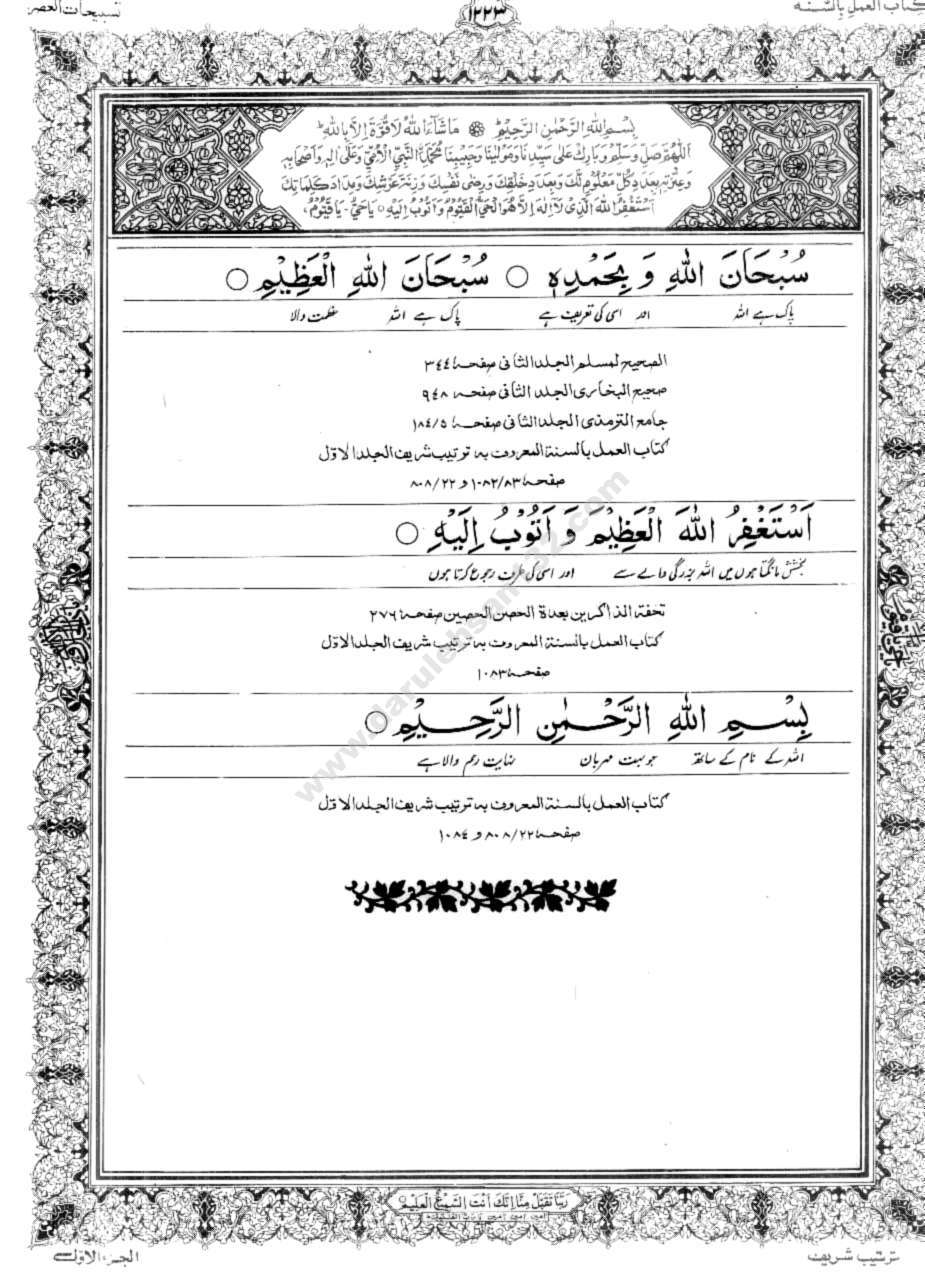 کتاب العمل بالسنہ
١٢٢٣
تسبیحات العصر
بِسْمِ اللهِ الرَّحْمٰنِ الرَّحِيْمِ مَا شَآءَ اللهُ لَا قُوَّةَ اِلَّا بِاللهِ
اَللّٰهُمَّ صَلِّ وَسَلِّمْ وَبَارِكْ عَلٰى سَيِّدِنَا وَمَوْلٰينَا وَحَبِيْبِنَا مُحَمَّدِنِ النَّبِيِّ الْاُمِّيِّ وَعَلٰى اٰلِهٖ وَاَصْحَابِهٖ
وَعِتْرَتِهٖ بِعَدَدِ كُلِّ مَعْلُوْمٍ لَّكَ وَبِعَدَدِ خَلْقِكَ وَرِضٰى نَفْسِكَ وَزِنَةَ عَرْشِكَ وَمِدَادَ كَلِمَاتِكَ
اَسْتَغْفِرُ اللهَ الَّذِيْ لَآ اِلٰهَ اِلَّا هُوَ الْحَيُّ الْقَيُّوْمُ وَاَتُوْبُ اِلَيْهِ ○ يَا حَيُّ - يَا قَيُّوْمُ
سُبْحَانَ اللهِ وَ بِحَمْدِهٖ ○ سُبْحَانَ اللهِ الْعَظِيْمِ ○
پاک ہے اللہ اور اسی کی تعریف ہے پاک ہے اللہ عظمت والا
الصحیح لمسلم الجلد الثانی صفحہ ٣٤٤
صحیح البخاری الجلد الثانی صفحہ ٩٤٨
جامع الترمذی الجلد الثانی صفحہ ١٨٤/٥
کتاب العمل بالسنۃ المعروف بہ ترتیب شریف الجلد الاوّل
صفحہ ١٠٨٢/٨٣ و ٨٠٨/٢٢
اَسْتَغْفِرُ اللهَ الْعَظِيْمَ وَ اَتُوْبُ اِلَيْهِ ○
بخشش مانگتا ہوں میں اللہ بزرگی والے سے اور اسی کی طرف رجوع کرتا ہوں
تحفۃ الذاکرین بعدۃ الحصن الحصین صفحہ ٢٧٦
کتاب العمل بالسنۃ المعروف بہ ترتیب شریف الجلد الاوّل
صفحہ ١٠٨٣
بِسْمِ اللهِ الرَّحْمٰنِ الرَّحِيْمِ ○
اللہ کے نام کے ساتھ جو بہت مہربان نہایت رحم والا ہے
کتاب العمل بالسنۃ المعروف بہ ترتیب شریف الجلد الاوّل
صفحہ ٨٠٨/٢٢ و ١٠٨٤
www.darulehsan
.com
رَبَّنَا تَقَبَّلْ مِنَّا اِنَّكَ اَنْتَ السَّمِيْعُ الْعَلِيْمُ
ترتیب شریف
الجزء الاوّل